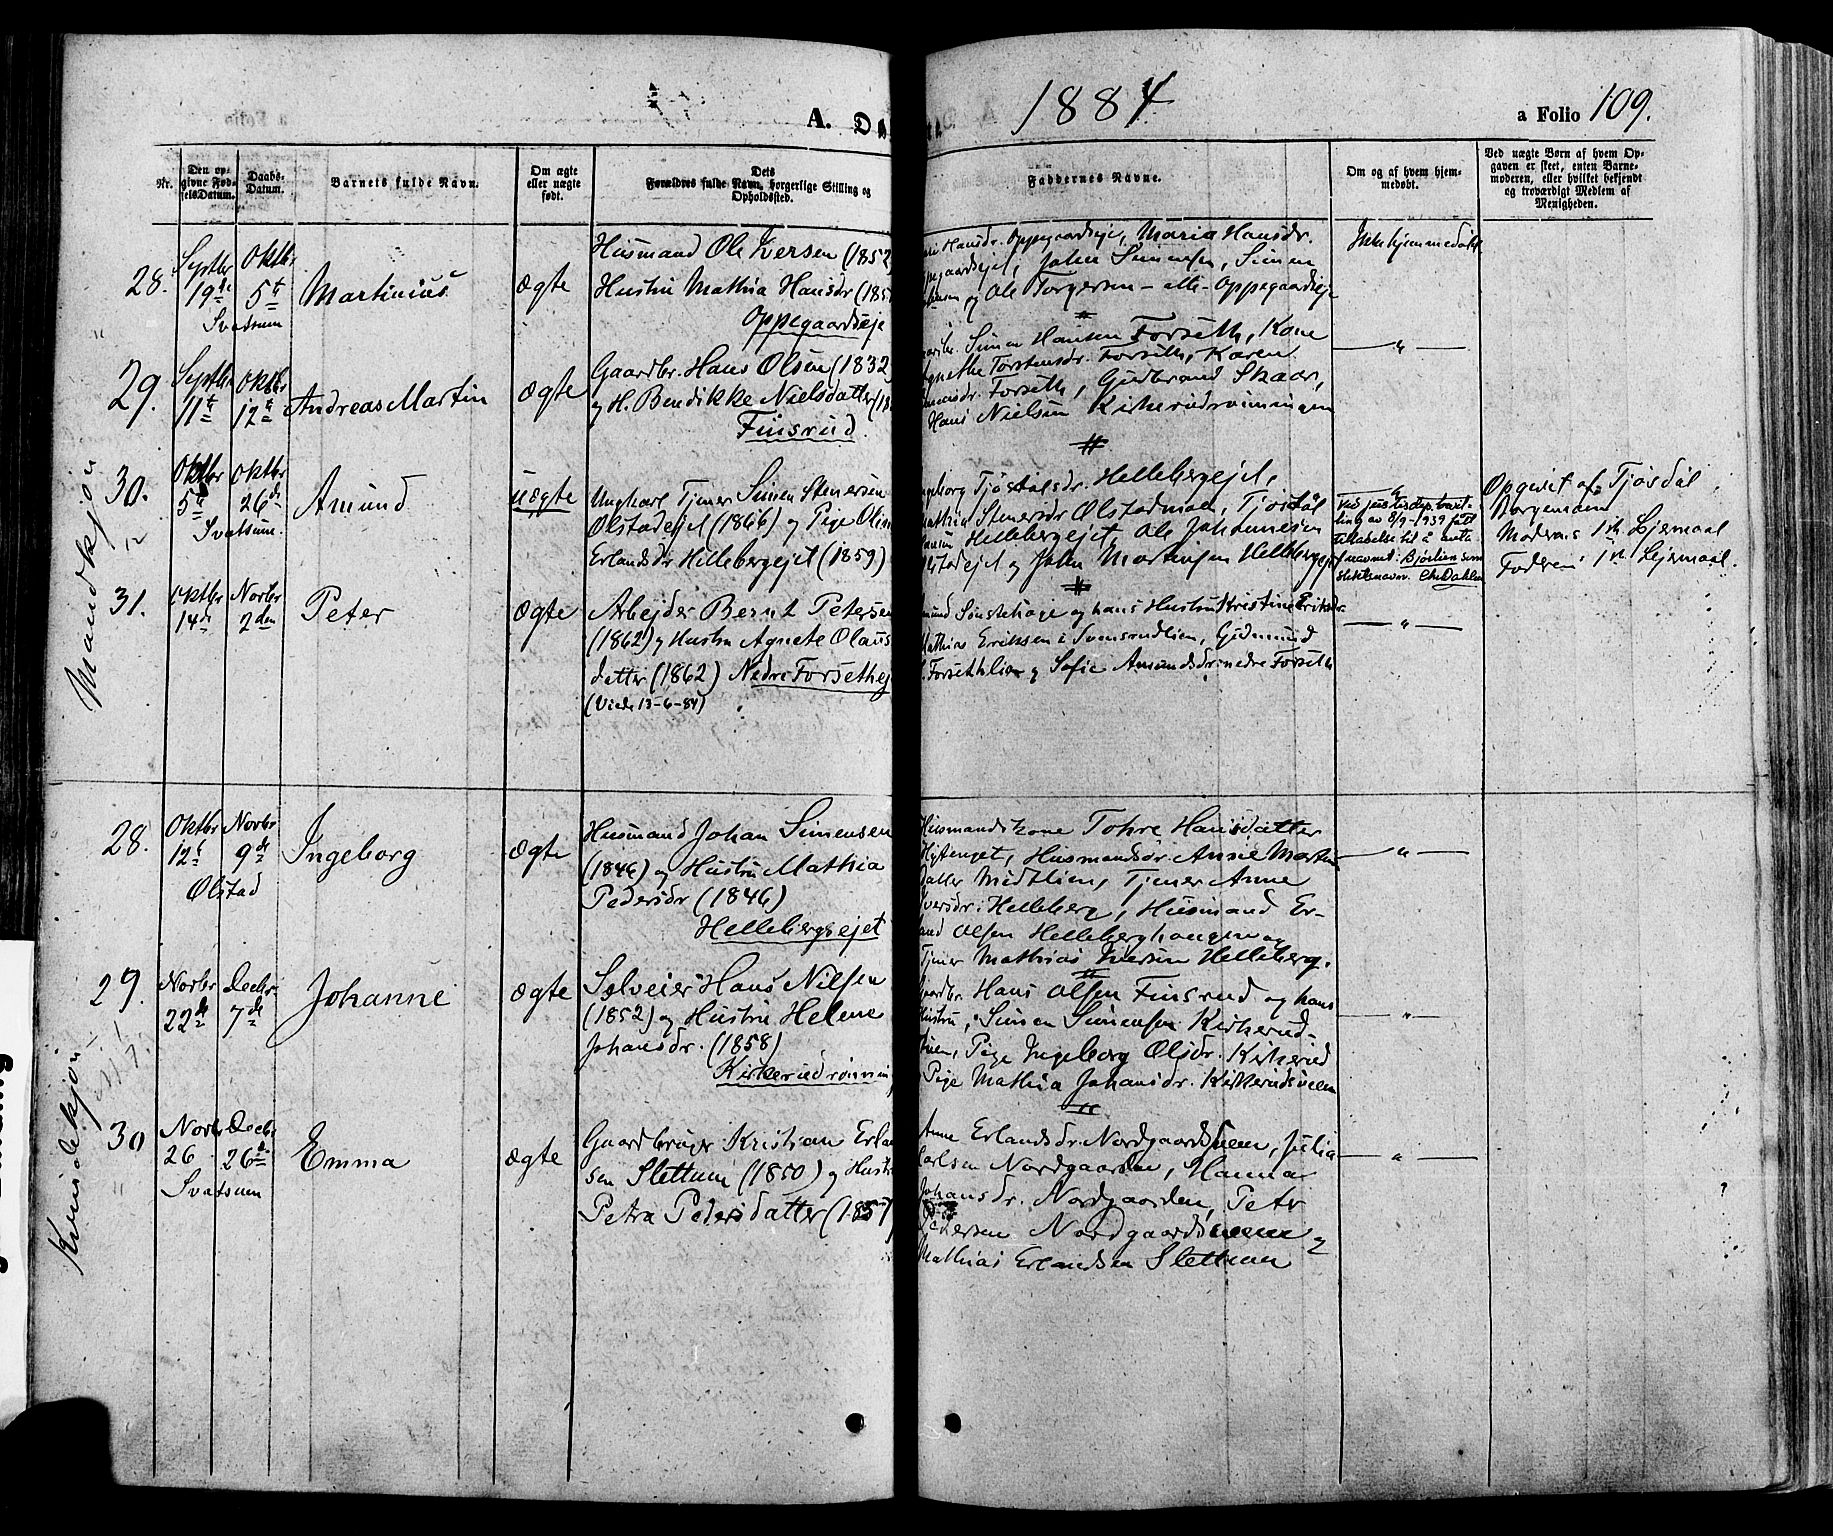 A. Da
1884
a Folio 109.
Nr.
Den op-
givne Fød-
selsDatum.
Daabs-
Datum.
Barnets fulde Navn.
Om ægte
eller uægte
født.
Dets
Forældres fulde Navn, borgerlige Stilling og
Opholdssted.
Faddernes Navne.
Om og af hvem hjem-
medøbt.
Ved uægte Børn af hvem Op-
gaven er skeet, enten Barne-
moderen, eller hvilket bekjendt
og troværdigt Medlem af
Menigheden.
Mandkjøn
28.
Septbr
19de
Oktbr
5te
Svatsum
Martinius
ægte
Husmand Ole Iversen (1852)
Hustru Mathia Hansdr (185
Oppegaardseje
Hansdr. Oppegaardseje, Maria Hansdr.
Oppegaardsejet, Johan Simensen, Simen
og Ole Torgersen - alle - Oppegaardseje
Ikke hjemmedøbt
29.
Septbr
11te
Oktbr
12te
Andreas Martin
ægte
Gaardbr. Hans Olsen (1832)
og H. Bendikke Nielsdatter (18
Finsrud
Simen Hansen Forseth, Kone
Agnethe Torstensdr. Forseth, Karen
Forseth, Gudbrand Skaar,
Hans Nielsen Kirkerudrønningen
— " —
30.
Oktbr
5te
Oktbr
26de
Svatsum.
Amund
uægte
Ungkarl Tjener Simen Stenersen
Ølstadejet (1866) og Pige Olin
Erlandsdr Hellebergejet (1859)
Ingeborg Tjøstalsdr. Hellebergejet,
Mathia Stenersdr Ølstadmoen, Tjøstøl
Hellebergejet, Ole Johannesen
Ølstadejet og Johan Mortinsen Hellebergejet
Ved justisdep. bevil-
ling av 8/9-1939 fått
tilladelse til å anta
navnet: Bjørlien som
slektsnavn. Chr Dahlen
Opgivet af Tjøsdal
Borgemoen
Moderens 1ste Lejermaal
Faderens 1ste Lejermaal.
31.
Oktbr
14de
Novbr
2den
Peter
ægte
Arbejder Bernt Petersen
(1862) og Hustru Agnete Olaus
datter (1862) Nedre Forsethej
(Viede 13-6-84)
Amund Sønstehage og hans Hustru Kristine Eriksdr.
Mathias Eriksen i Svensrudlien, Gudmund
Forsethlien og Sofie Amundsdr. nedre Forseth
— " —
Kvindekjøn
28.
Oktbr
12te
Novbr
9de
Ølstad
Ingeborg
ægte
Husmand Johan Simensen
(1846) og Hustru Mathia
Pedersdr (1846)
Hellebergsejet
Husmandskone Tohre Hansdatter
Husmandsdr. Anne Martin
datter Midtlien, Tjener Anne
Iversdr. Helleberg, Husmand Er-
land Olsen Helleberghaugen og
Tjener Mathias Iversen Helleberg.
— " —
29.
Novbr
22de
Decbr
7de
Johanne
ægte
Selveier Hans Nilsen
(1852) og Hustru Helene
Johansdr. (1858)
Kirkerudrønnin
Gaardbr. Hans Olsen Finsrud og hans
Hustru, Simen Simensen Kirkerud-
Pige Ingeborg Olsdr. Kirkerud
Pige Mathia Johansdr. Kirkerudsveen
— " —
30
Novbr
26
Decbr
26de
Svatsum
Emma
ægte
Gaardbruger Kristian Erland
sen Slettum (1850) og Hustru
Petra Pedersdatter (1857)
Anne Erlandsdr. Nordgaardsveen, Julia
Carlsen Nordgaarden, Hanna
Johansdr. Nordgaarden, Peter
Pedersen Nordgaardsveen og
Mathias Erlandsen Slettum
— " —